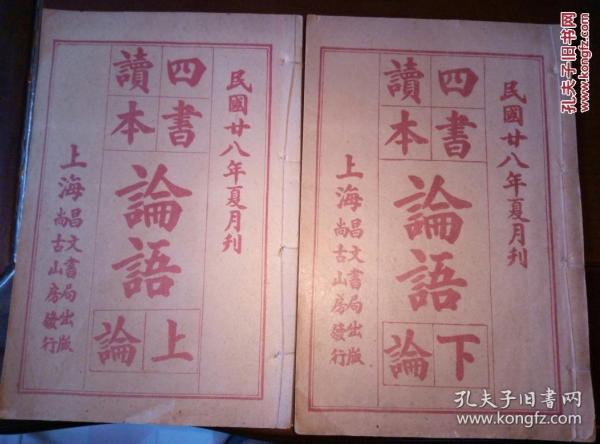 民國廿八年夏月刊
四書
讀本
論語
上論
上海昌文書局出版
尚古山房發行
民國廿八年夏月刊
四書
讀本
論語
下論
上海昌文書局出版
尚古山房發行
孔夫子旧书网
www.kongfz.com
孔夫子旧书网
www.kongfz.com